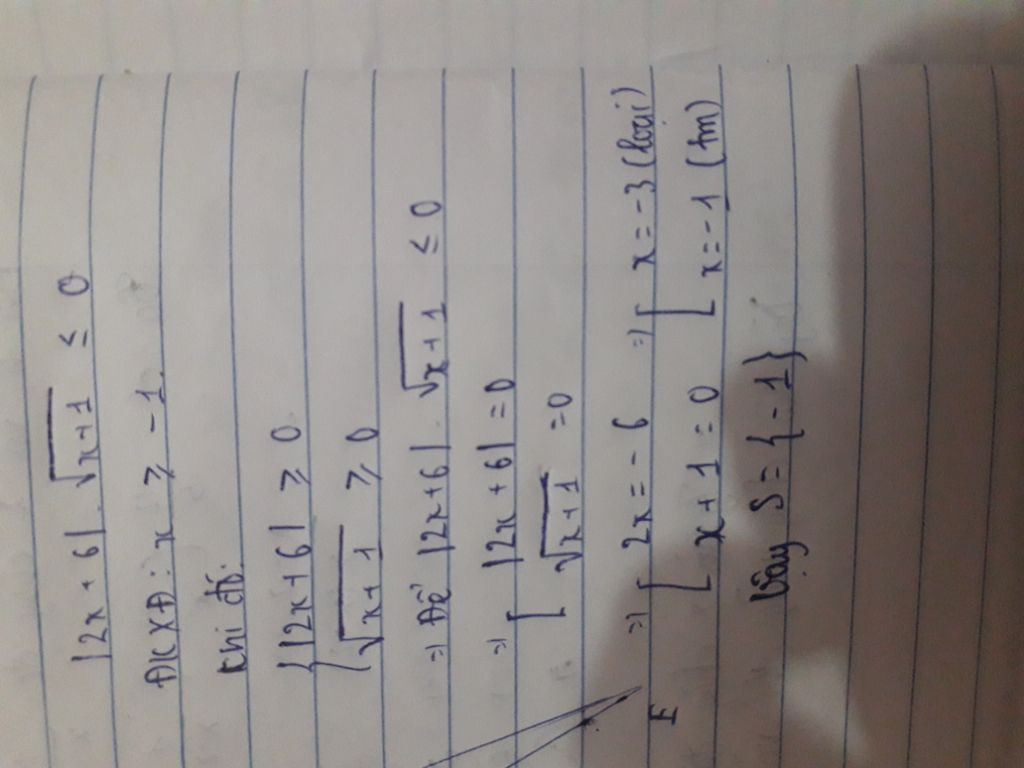 |2x + 6|. √x+1 ≤ 0
ĐKXĐ: x ⩾ -1.
Khi đó:
{ |2x+6| ⩾ 0
√x+1 ⩾ 0
=) Để |2x+6|. √x+1 ≤ 0
=) [ |2x+6| = 0
√x+1 = 0
=) [ 2x = -6 =) [ x = -3 (loại)
x+1 = 0 x = -1 (tm)
Vậy S = {-1}
E